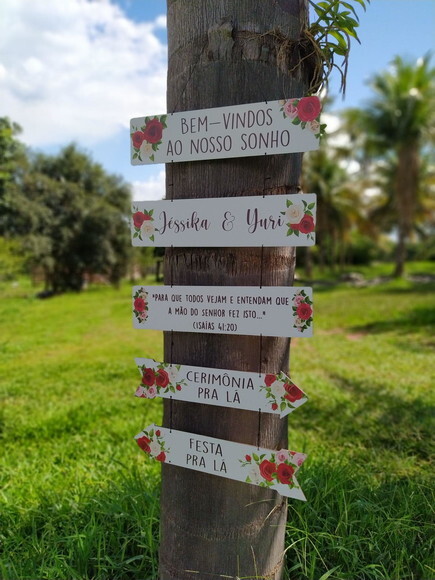 BEM-VINDOS
AO NOSSO SONHO
Jéssika & Yuri
"PARA QUE TODOS VEJAM E ENTENDAM QUE
A MÃO DO SENHOR FEZ ISTO..."
(ISAÍAS 41:20)
CERIMÔNIA
PRA LÁ
FESTA
PRA LÁ